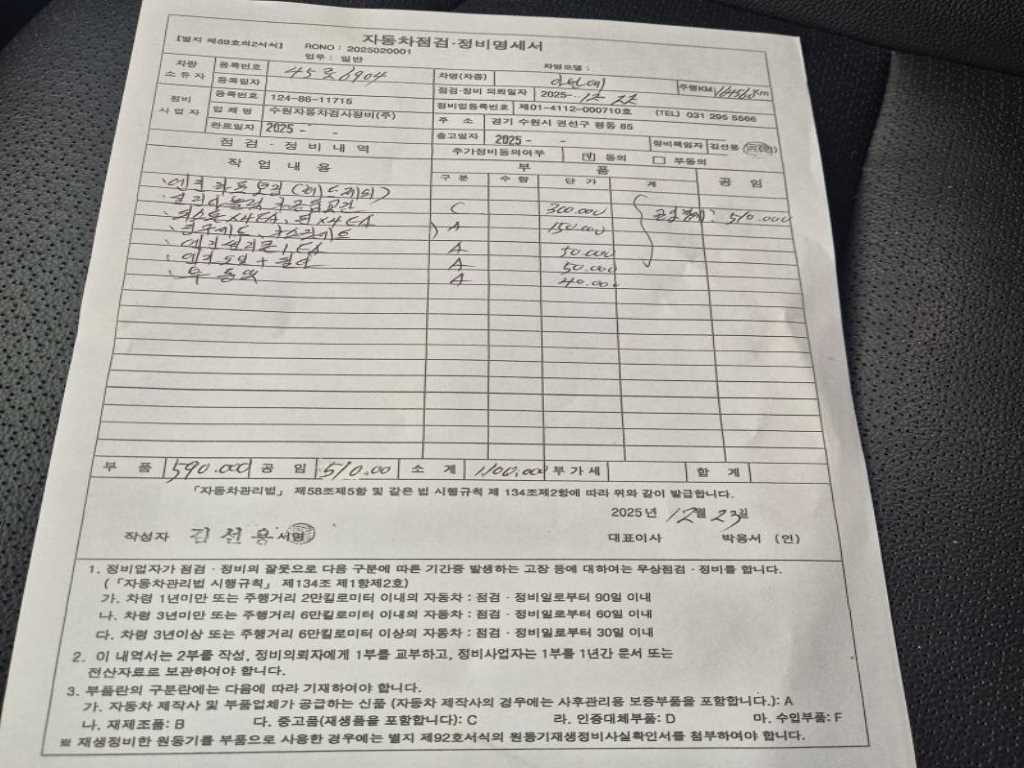 [별지 제89호의2서식]
자동차점검·정비명세서
RONO : 2025020001
업무 : 일반
차량 소유자
등록번호
등록일자
차명(차종)
차명모델 :
주행KM
Km
점검·정비 의뢰일자 2025- 12 22
정비 사업자
등록번호 124-86-11715
정비업등록번호 제01-4112-000710호 (TEL) 031 295 5566
업 체 명 수원자동차검사정비(주)
주 소 경기 수원시 권선구 평동 85
완료일자 2025 - -
출고일자 2025 - -
정비책임자 김선용
점 검 · 정 비 내 역
추가정비동의여부 동의 부동의
작 업 내 용
부 품
공 임
구 분 수 량 단 가 계
C 300.000 510.000
A 150.000
A 50.000
A 50.000
A 40.000
부 품 590.000 공 임 510.00 소 계 1100.000 부 가 세 합 계
「자동차관리법」 제58조제5항 및 같은 법 시행규칙 제 134조제2항에 따라 위와 같이 발급합니다.
2025년 12월 23일
작성자 김 선 용 서명 대표이사 박용서 (인)
1. 정비업자가 점검 · 정비의 잘못으로 다음 구분에 따른 기간중 발생하는 고장 등에 대하여는 무상점검 · 정비를 합니다.
(「자동차관리법 시행규칙」 제134조 제1항제2호)
가. 차령 1년미만 또는 주행거리 2만킬로미터 이내의 자동차 : 점검 · 정비일로부터 90일 이내
나. 차령 3년미만 또는 주행거리 6만킬로미터 이내의 자동차 : 점검 · 정비일로부터 60일 이내
다. 차령 3년이상 또는 주행거리 6만킬로미터 이상의 자동차 : 점검 · 정비일로부터 30일 이내
2. 이 내역서는 2부를 작성, 정비의뢰자에게 1부를 교부하고, 정비사업자는 1부를 1년간 문서 또는
전산자료로 보관하여야 합니다.
3. 부품란의 구분란에는 다음에 따라 기재하여야 합니다.
가. 자동차 제작사 및 부품업체가 공급하는 신품 (자동차 제작사의 경우에는 사후관리용 보증부품을 포함합니다.): A
나. 재제조품: B 다. 중고품(재생품을 포함합니다): C 라. 인증대체부품: D 마. 수입부품: F
※ 재생정비한 원동기를 부품으로 사용한 경우에는 별지 제92호서식의 원동기재생정비사실확인서를 첨부하여야 합니다.